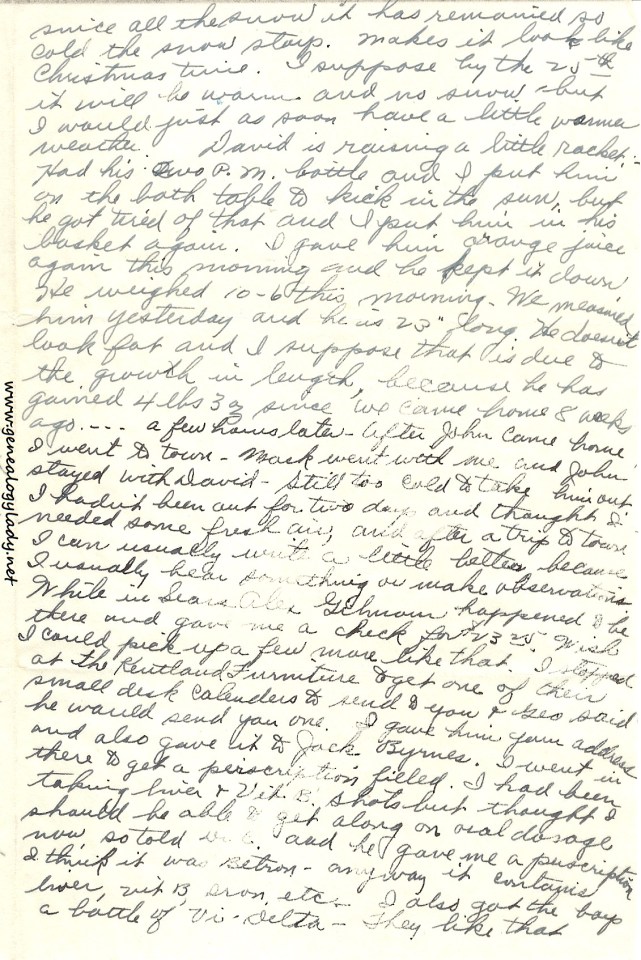 since all the snow it has remained so
cold the snow stays. Makes it look like
Christmas time. I suppose by the 25th
it will be warm and no snow - but
I would just as soon have a little warmer
weather. David is raising a little racket. -
Had his two P.M. bottle and I put him
on the bath table to kick in the sun, but
he got tired of that and I put him in his
basket again. I gave him orange juice
again this morning and he kept it down
He weighed 10-6 this morning - We measured
him yesterday and he is 23" long. He doesn't
look fat and I suppose that is due to
the growth in length, because he has
gained 4 lbs 3 oz since we came home 8 weeks
ago. - - - - a few hours later - After John came home
I went to town - Mark went with me and John
stayed with David - Still too cold to take him out
I hadn't been out for two days and thought I
needed some fresh air, and after a trip to town
I can usually write a little better because
I usually hear something or make observations
While in Sears Alex happened to be
there and gave me a check for $23.25. Wish
I could pick up a few more like that. I stopped
at the Kentland Furniture to get one of their
small disk calenders to send to you & Geo said
he would send you one. I gave him your address
and also gave it to Jack Byrnes. I went in
there to get a perscription filled. I had been
taking liver & Vit. B, shots but thought I
should be able to get along on oral dosage
now, so told and he gave me a puscription
I think it was Betron - anyway it contains
liver, vit B, iron, etc. I also got the boys
a bottle of Vi-Delta - They like that
www.genealogylady.net